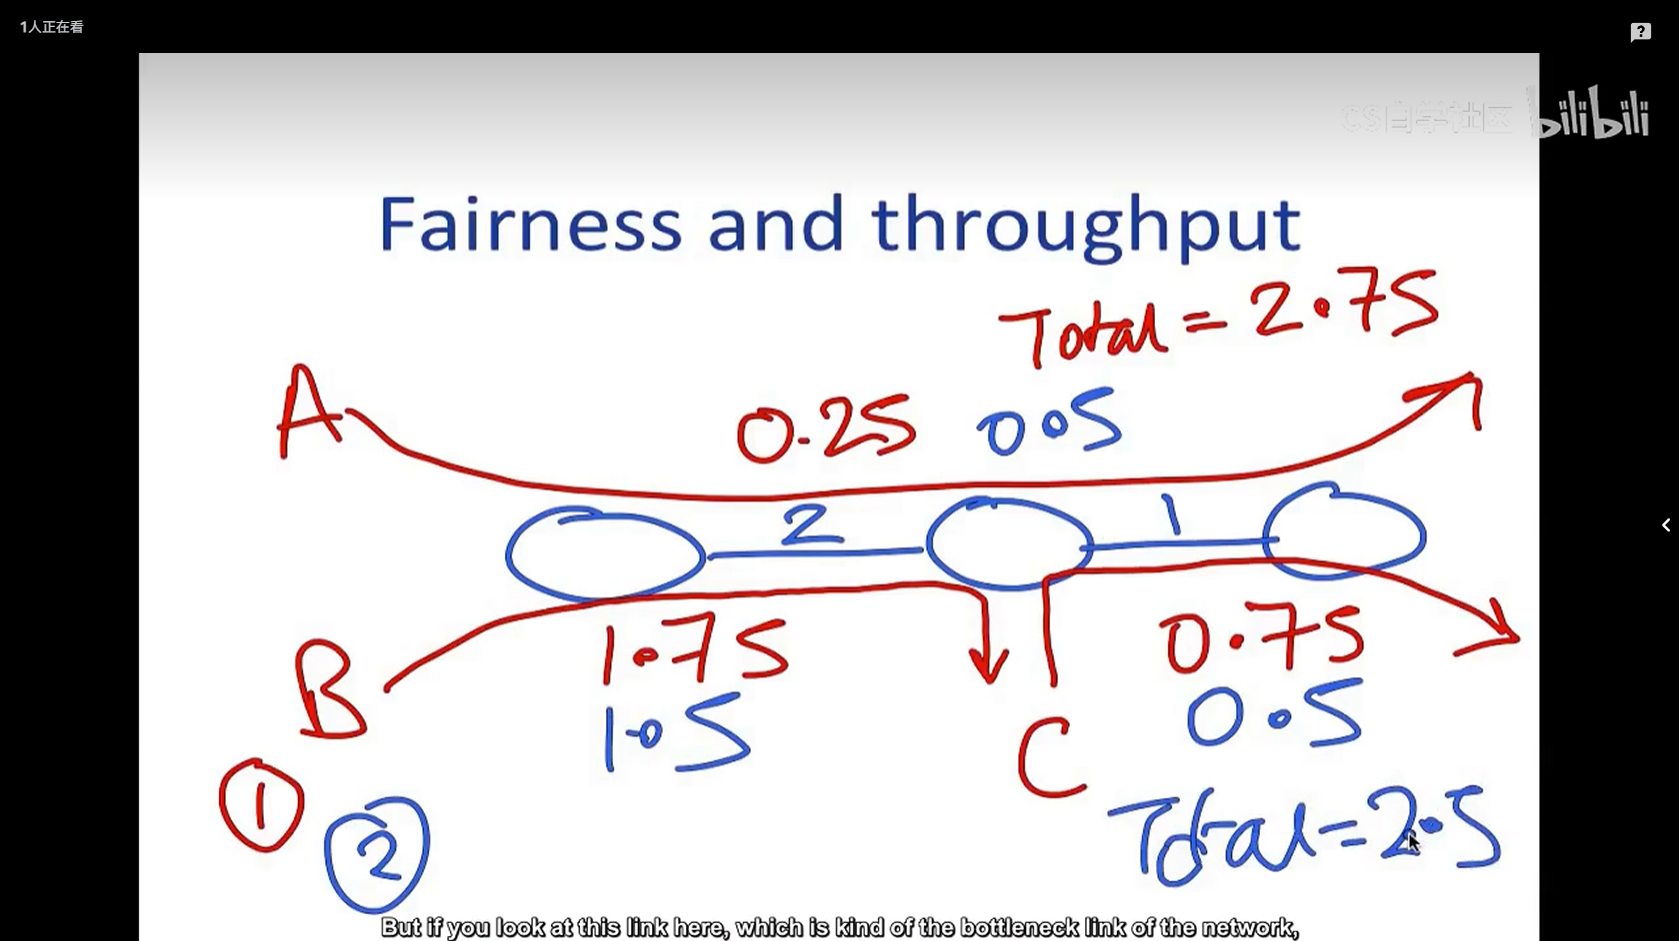 1人正在看
?
CS自学社区 bilibili
Fairness and throughput
Total = 2.75
A
0.25 0.5
2
1
1.75
0.75
B
1.5
0.5
C
1
2
Total = 2.5
But if you look at this link here, which is kind of the bottleneck link of the network,